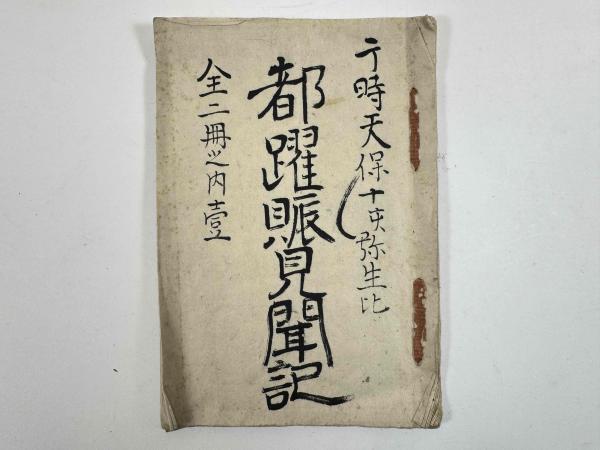 于時天保十亥弥生比
都躍賑見聞記
全二冊之内壹